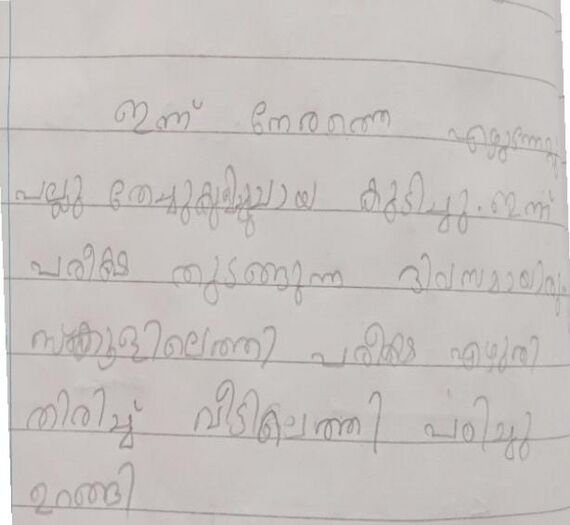 ഇന്ന് നേരത്തെ എഴുന്നേറ്റു
പല്ലു തേച്ചുകുളിച്ചുചായ കുടിച്ചു. ഇന്ന്
പരീക്ഷ തുടങ്ങുന്ന ദിവസമായിരുന്നു
സ്കൂളിലെത്തി പരീക്ഷ എഴുതി
തിരിച്ച് വീട്ടിലെത്തി പഠിച്ചു
ഉറങ്ങി